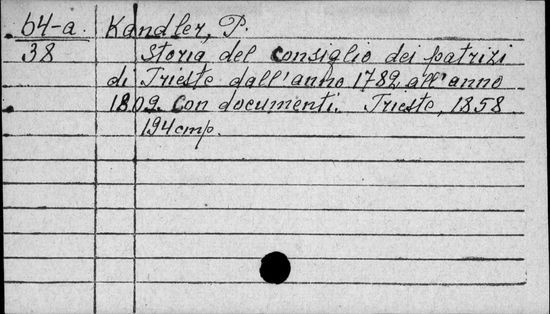 64-a. Kandler, P.
38 Storia del consiglio dei patrizi
di Trieste dall'anno 1782 all'anno
1809. Con documenti. Trieste, 1858.
194 cmp.